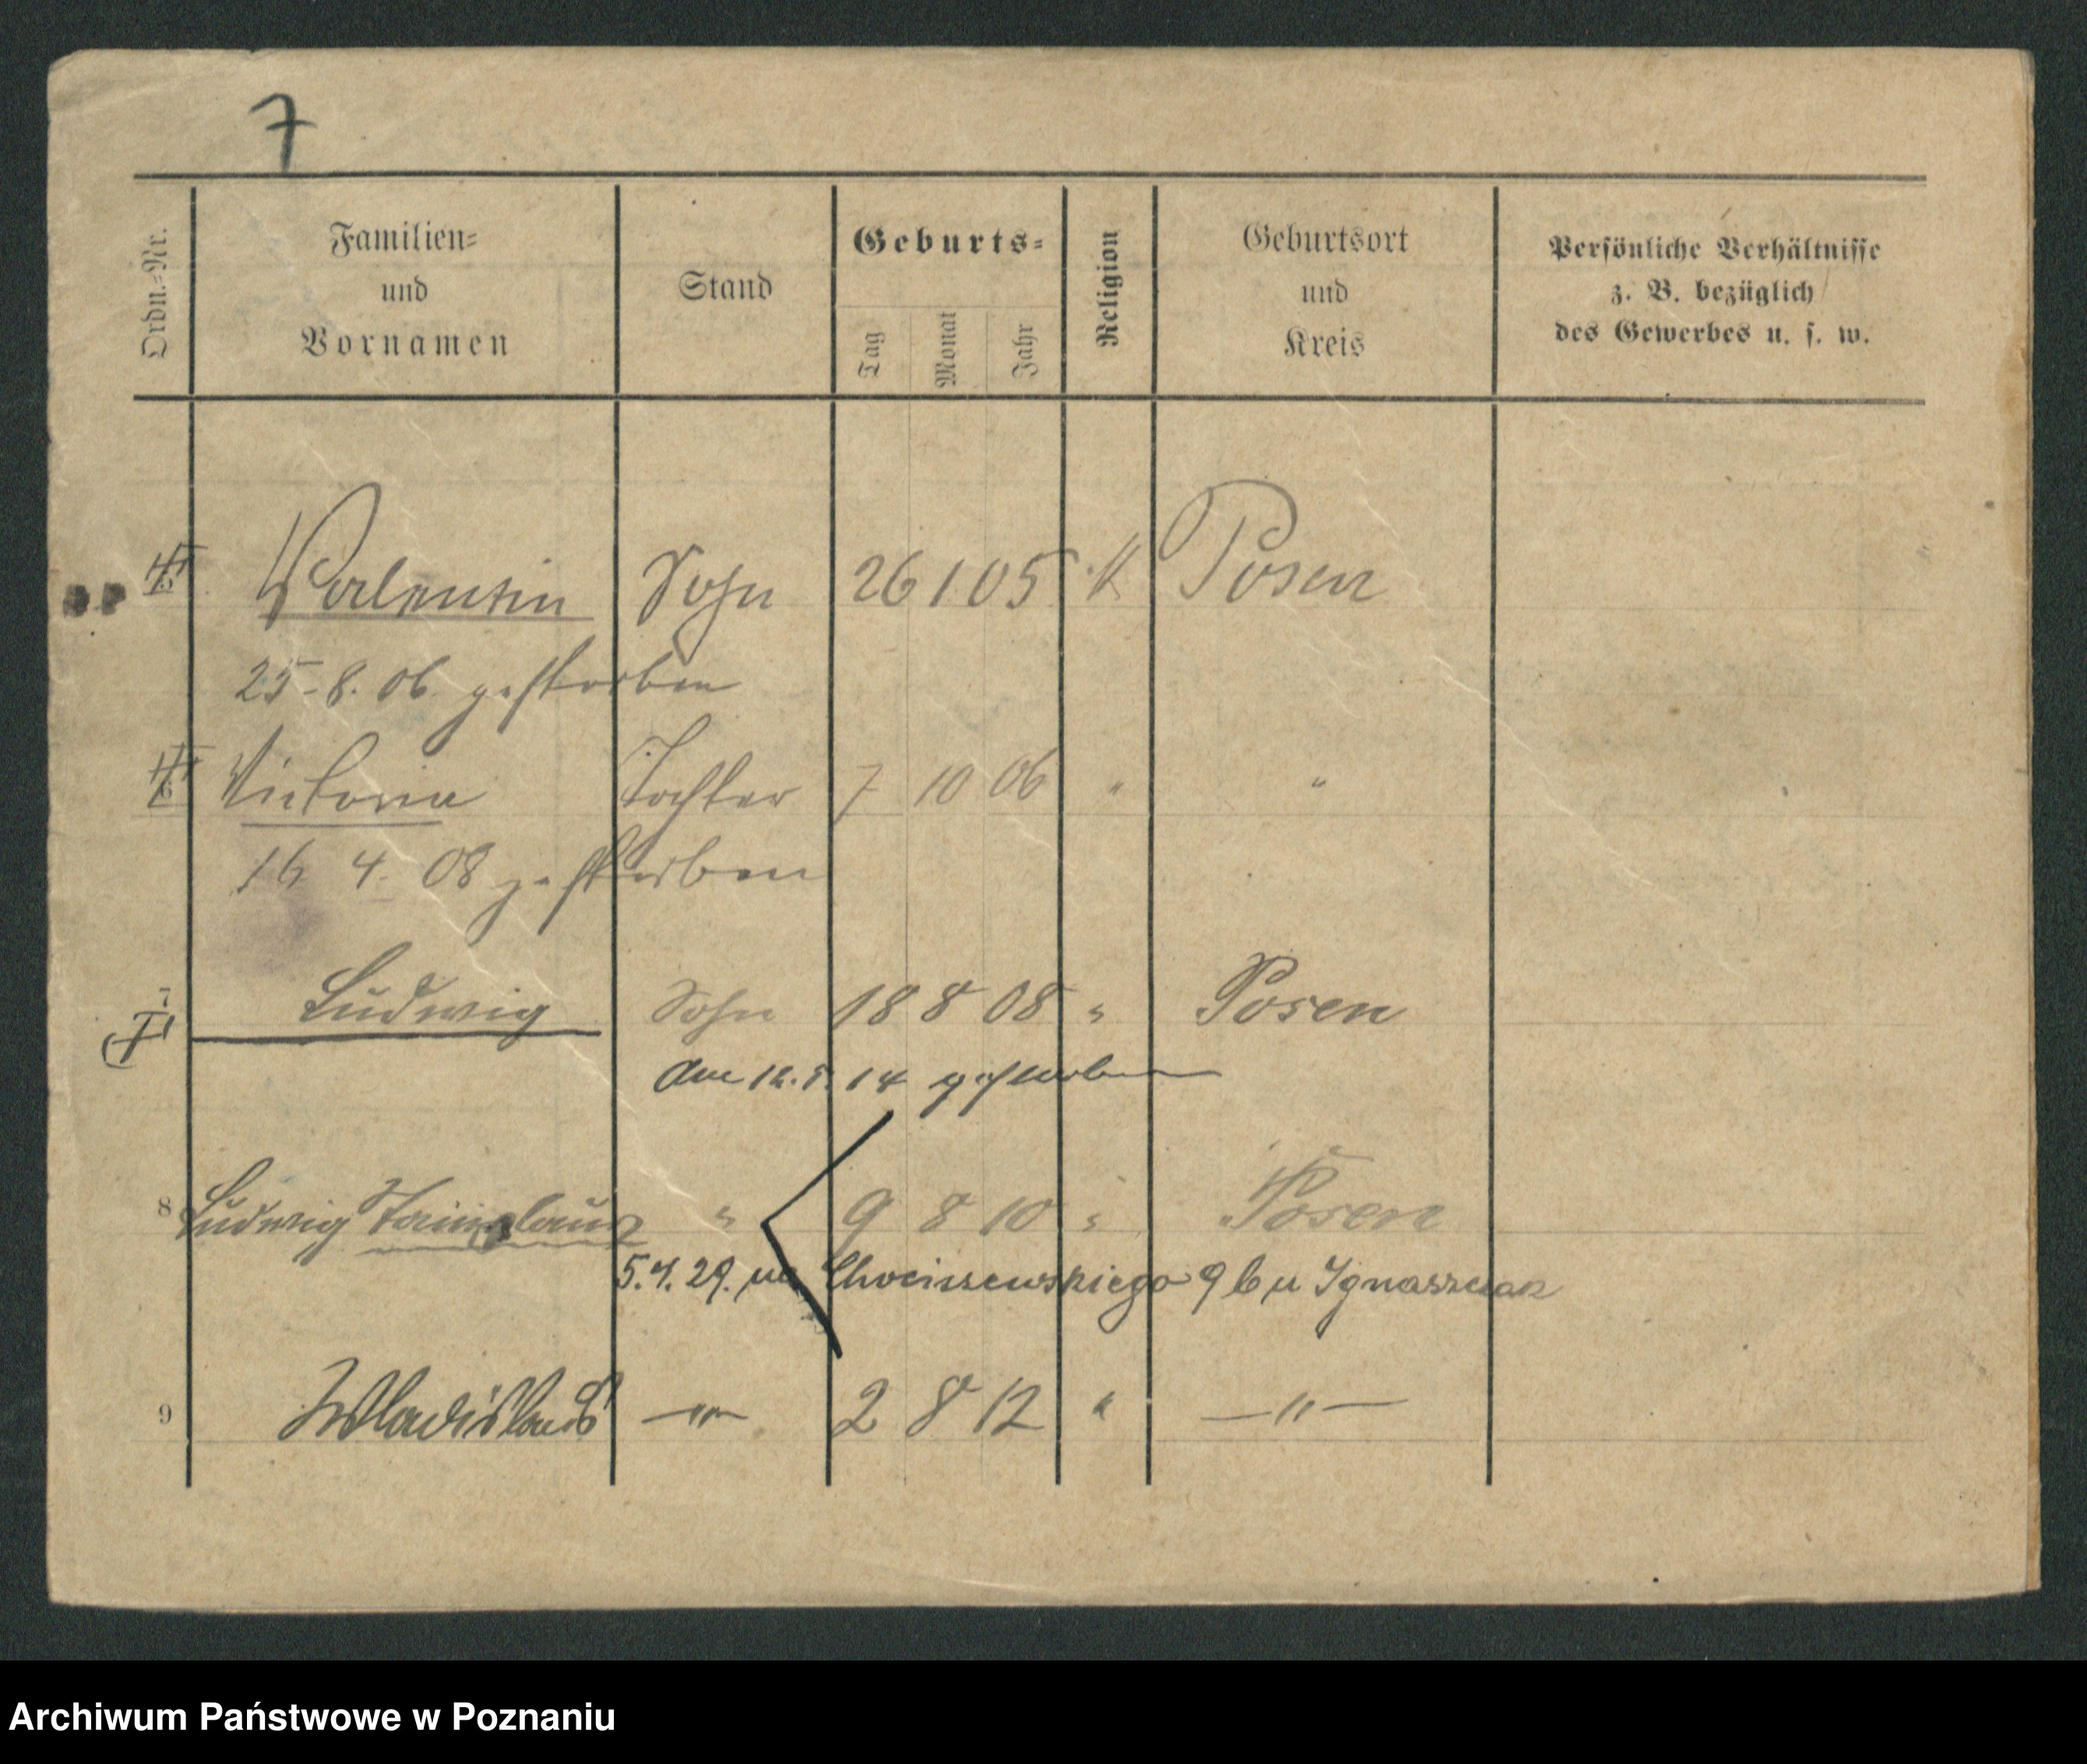 7
Ordn.-Nr. Familien- und Vornamen Stand Geburts- Tag Monat Jahr Religion Geburtsort und Kreis Persönliche Verhältnisse z. B. bezüglich des Gewerbes u. s. w.
5 Valentin Sohn 26 1 05 K Posen
25. 8. 06 gestorben
6 Victoria Tochter 7 10 06 " "
16 4. 08 gestorben
7 Ludwig Sohn 18 8 08 " Posen
am 12. 5. 14 gestorben
8 Ludwig " 9 8 10 " Posen
5.4.29. Chociszewskiego 9 b u Ignaszczak
9 Wladislaus — " — 2 8 12 " — " —
Archiwum Państwowe w Poznaniu